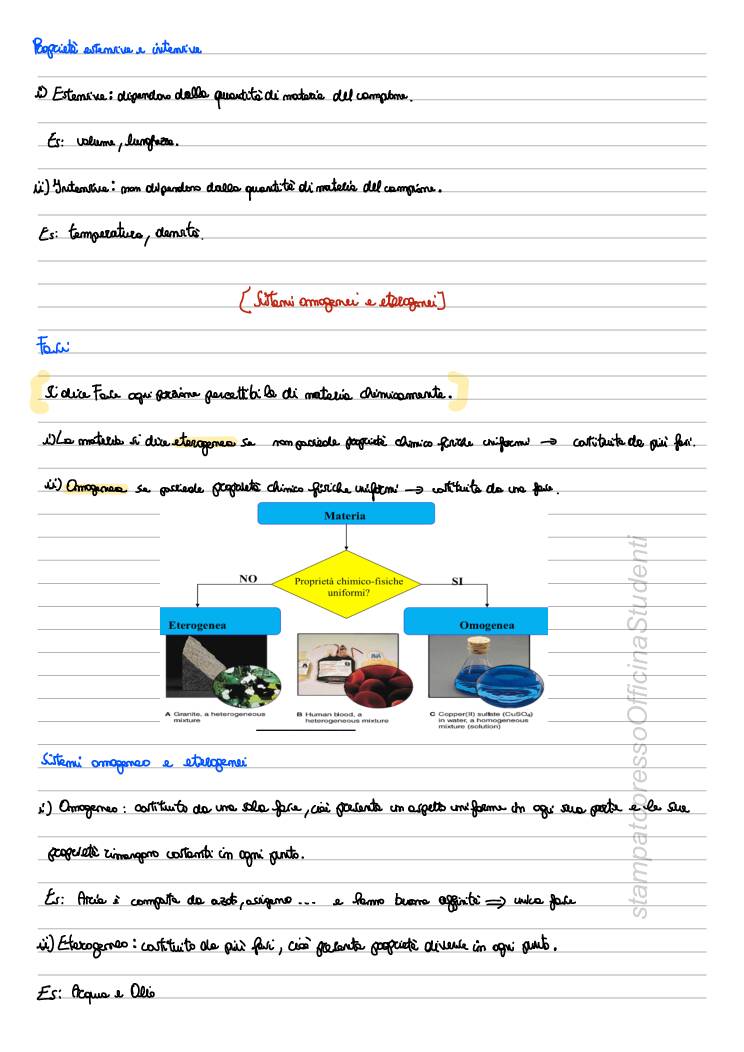 Proprietà estensive e intensive
i) Estensive: dipendono dalla quantità di materia del campione.
Es: volume, lunghezza.
ii) Intensive: non dipendono dalla quantità di materia del campione.
Es: temperatura, densità.
[Sistemi omogenei e eterogenei]
Fasi
[Si dice Fase ogni porzione percettibile di materia chimicamente.]
i) La materia si dice eterogenea se non possiede proprietà chimico fisiche uniformi → costituita da più fasi.
ii) Omogenea se possiede proprietà chimico fisiche uniformi → costituita da una fase.
Materia
NO
Proprietà chimico-fisiche
uniformi?
SI
Eterogenea
Omogenea
A Granite, a heterogeneous
mixture
B Human blood, a
heterogeneous mixture
C Copper(II) sulfate (CuSO4)
in water, a homogeneous
mixture (solution)
Sistemi omogeneo e eterogenei
i) Omogeneo: costituito da una sola fase, cioè presenta un aspetto uniforme in ogni sua parte e le sue
proprietà rimangono costanti in ogni punto.
Es: Aria è composta da azoto, ossigeno ... e hanno buona affinità ⇒ unica fase
ii) Eterogeneo: costituito da più fasi, cioè presenta proprietà diverse in ogni punto.
Es: Acqua e Olio
stampatopressoOfficinaStudenti